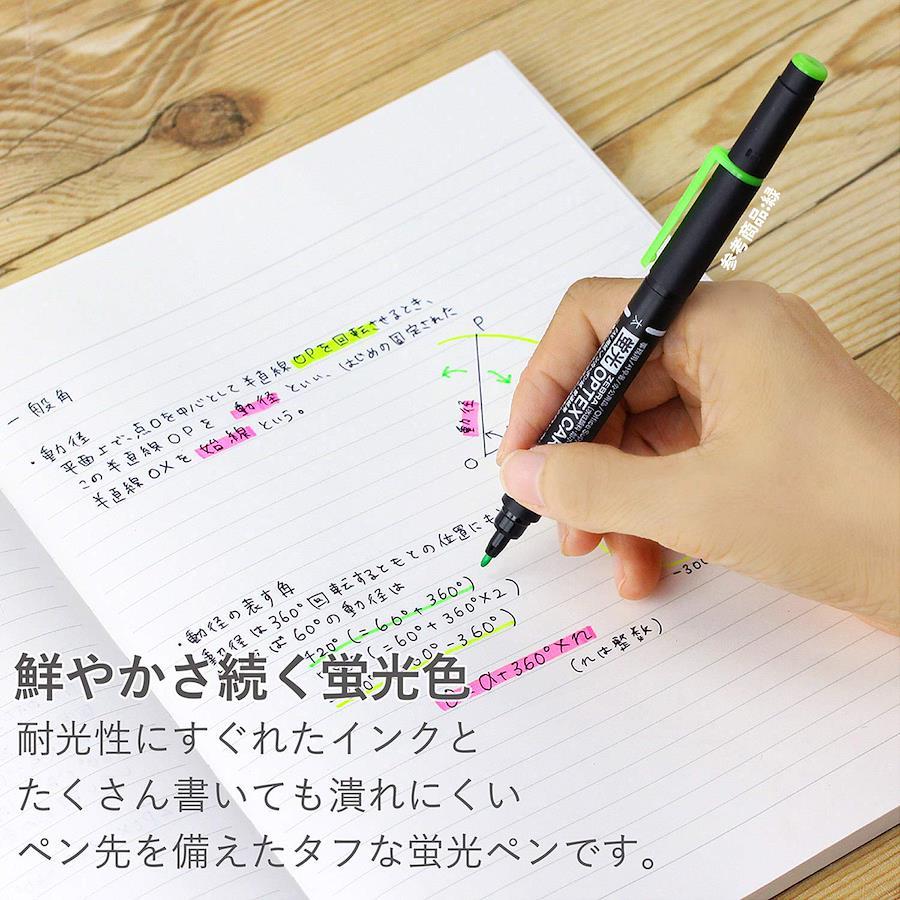 一般角
・動径
平面上で、点Oを中心として半直線OPを回転させるとき、
この半直線OPを動径といい、はじめの固定された
半直線OXを始線という。
P
動径
O
太
蛍光
ZEBRA
OPTEX CAR
参考商品:緑
・動径の表す角
動径は360°回転するともとの位置にも
60°の動径は
420°(=60°+360°)
(=60°+360°×2)
60°-360°)
α+360°×n
(nは整数)
-300
鮮やかさ続く蛍光色
耐光性にすぐれたインクと
たくさん書いても潰れにくい
ペン先を備えたタフな蛍光ペンです。